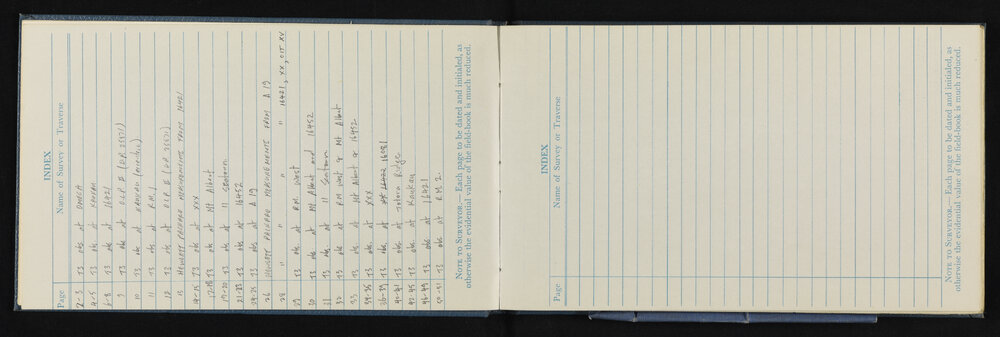 INDEX
Page Name of Survey or Traverse
2-3 T3 obs at OMEGA
4-5 T3 obs at KAUKAU
6-8 T3 obs at 16421
9 T3 obs at O.L.P. II (D.P. 25571)
10 T3 obs at KAUKAU (eccentric)
11 T3 obs at R.M. 1.
12 T3 obs at O.L.P. II (D.P. 25571)
13 HEWLETT PACKARD MEASUREMENTS FROM 16421
14-15 T3 obs at XXX
17-18 T3 obs at Mt Albert
19-20 T3 obs at 11 Seatoun
21-23 T3 obs at 16452
24-25 T3 obs at A 19
26 HEWLETT PACKARD MEASUREMENTS FROM A 19
28 " " " 16421, XX, OIT XV
29 T3 obs at R.M. West
30 T3 obs at Mt Albert and 16452
31 T3 obs at 11 Seatoun
32 T3 obs at R.M West & Mt Albert
33 T3 obs at Mt Albert & 16452
34-35 T3 obs at XXX
36-39 T3 obs at 16081
40-41 T3 obs at Totara Ridge
42-45 T3 obs at Kaukau
46-49 T3 obs at 16421
50-51 T3 obs at R.M 2.
NOTE TO SURVEYOR.— Each page to be dated and initialed, as
otherwise the evidential value of the field-book is much reduced.
INDEX
Page Name of Survey or Traverse
NOTE TO SURVEYOR.— Each page to be dated and initialed, as
otherwise the evidential value of the field-book is much reduced.